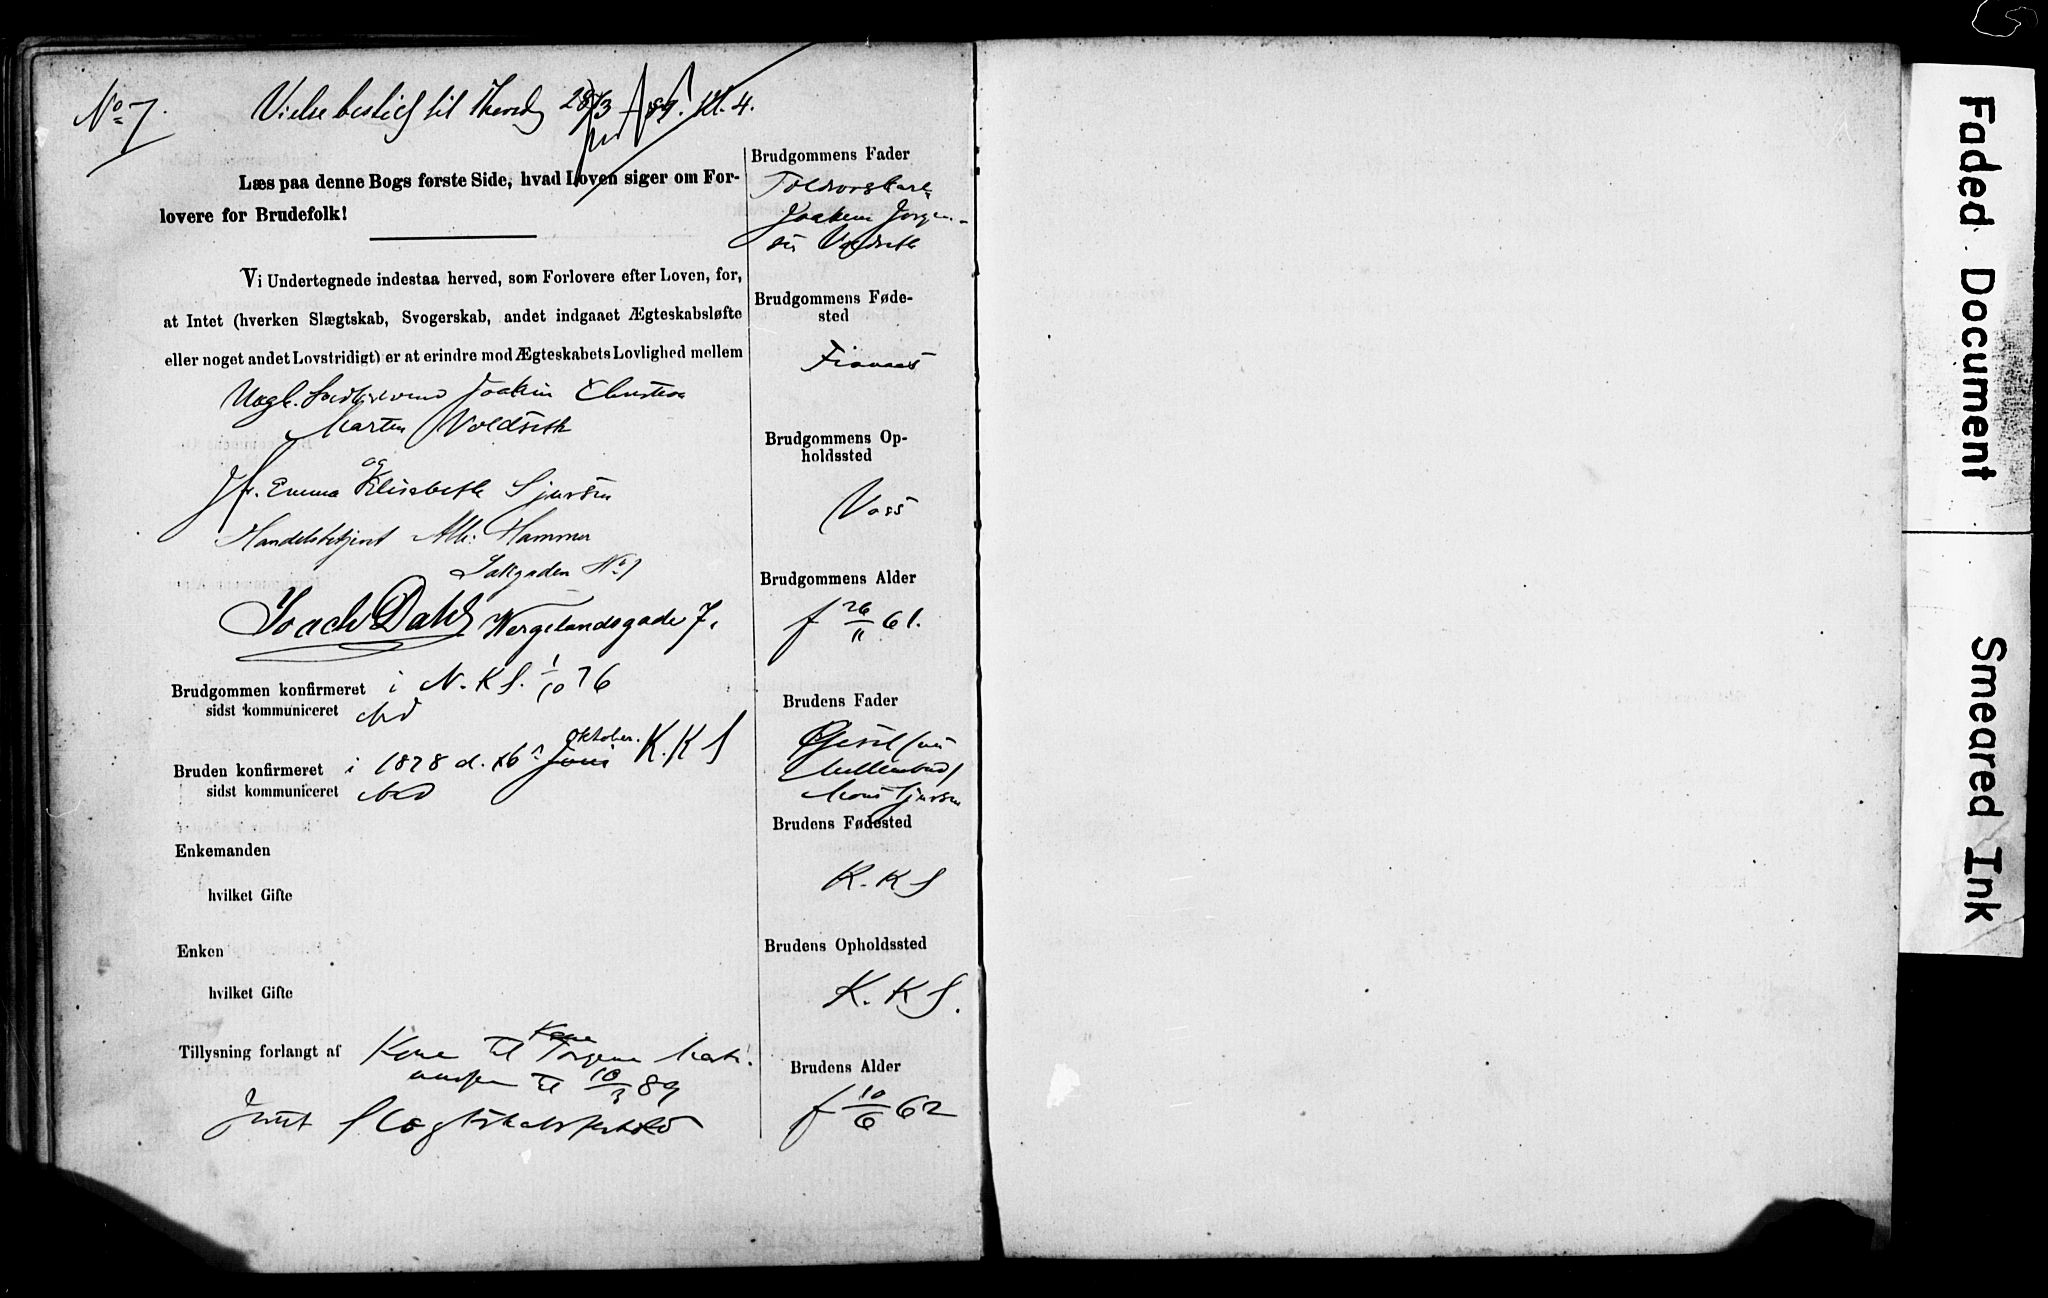 No 7.
Vielse bestilt til 28/3 89. Kl. 4.
Læs paa denne Bogs første Side, hvad Loven siger om For-
lovere for Brudefolk!
Vi Undertegnede indestaa herved, som Forlovere efter Loven, for,
at Intet (hverken Slægtskab, Svogerskab, andet indgaaet Ægteskabsløfte
eller noget andet Lovstridigt) er at erindre mod Ægteskabets Lovlighed mellem
Ungk. Joakim Christian
Marten Voldseth
og
Jfr. Emma Elisabeth Sjursen
Handelsbetjent Alb. Hammer
No 1
Joach Dahl Wergelandsgade 7.
Brudgommen konfirmeret i N. K S. 1/10 76
sidst kommuniceret
oktober.
Bruden konfirmeret i 1878 d. 6 Juni K. K S
sidst kommuniceret
Enkemanden
hvilket Gifte
Enken
hvilket Gifte
Kone
Tillysning forlangt af Kone til
til 10/3 89
Intet Slægtskabsforhold
Brudgommens Fader
Joakim Jørgen-
sen Voldseth
Brudgommens Føde-
sted
Brudgommens Op-
holdssted
Voss
Brudgommens Alder
f 26/11 61.
Brudens Fader
Mons Sjursen
Brudens Fødested
K. K S
Brudens Opholdssted
K. K S.
Brudens Alder
f 10/6 62
Faded Document
Smeared Ink